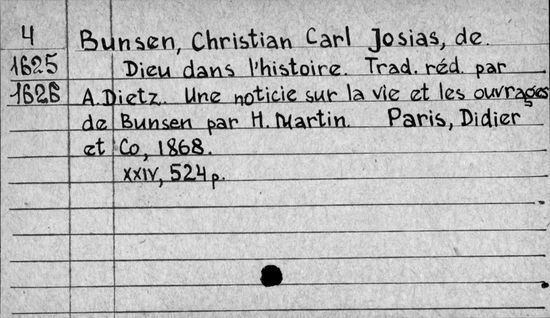 4 Bunsen, Christian Carl Josias, de.
1625 Dieu dans l'histoire. Trad. réd. par
1626 A. Dietz. Une noticie sur la vie et les ouvrages
de Bunsen par H. Martin. Paris, Didier
et Co, 1868.
XXIV, 524 p.